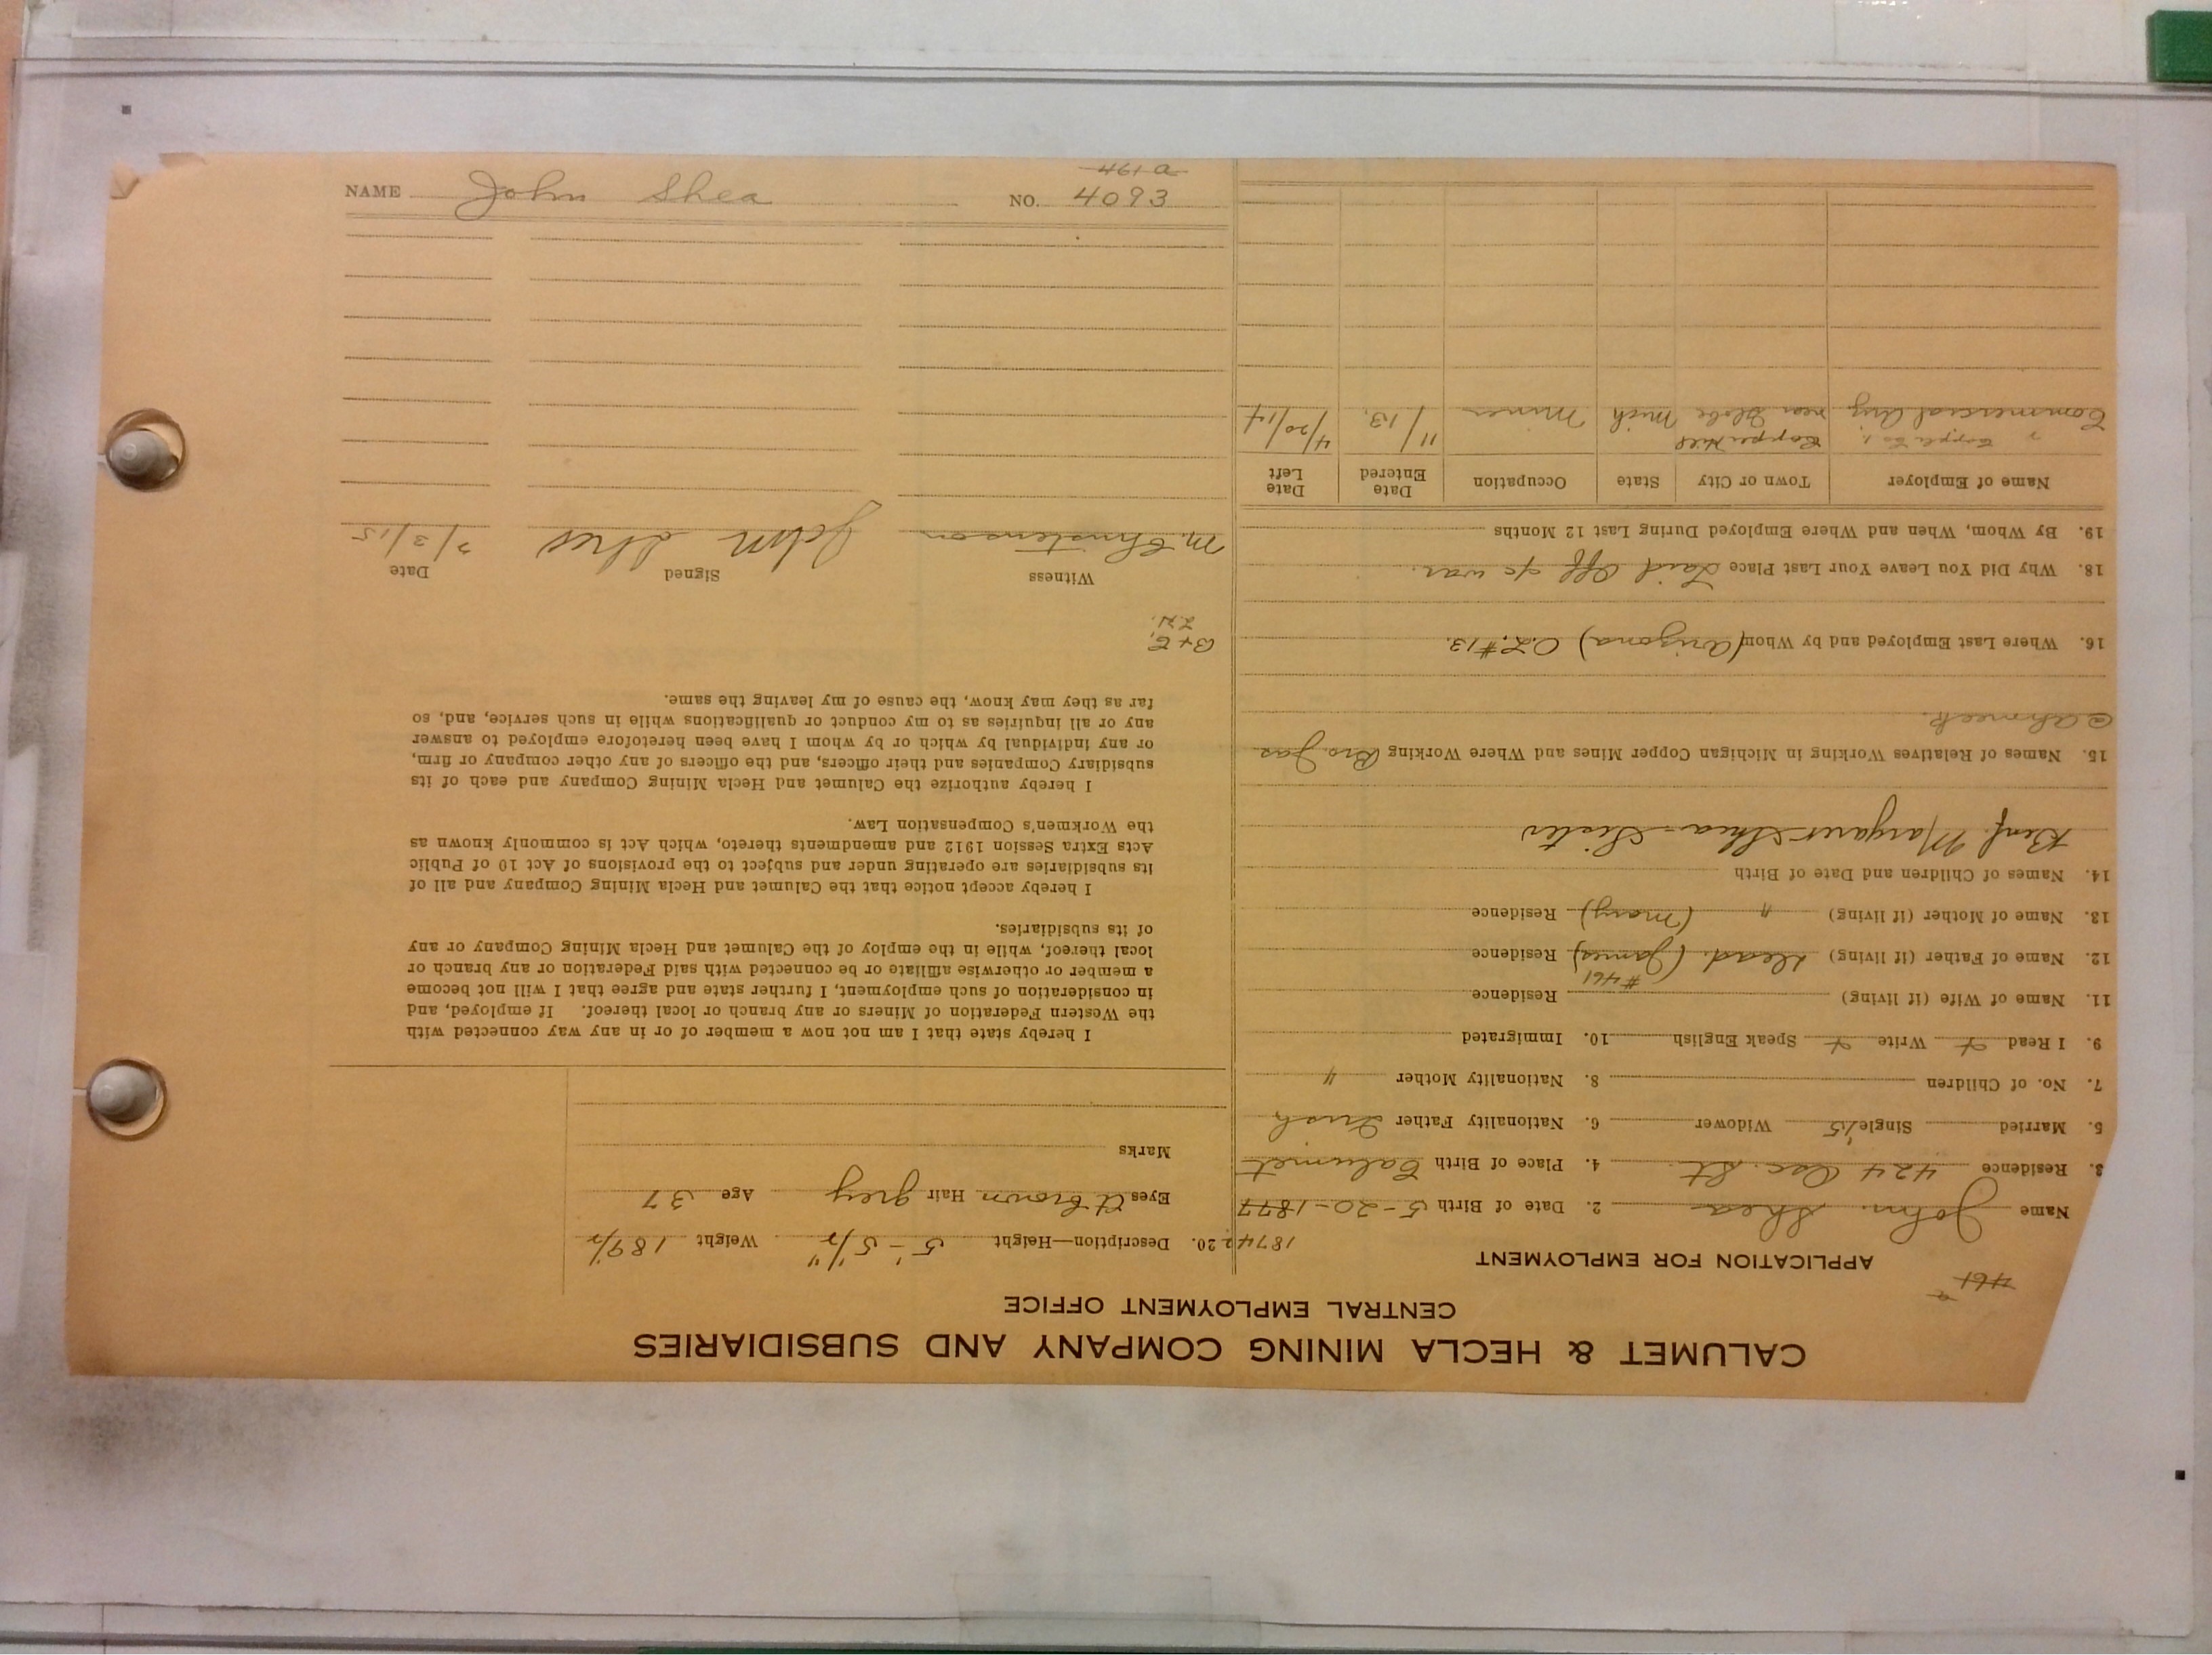 CALUMET & HECLA MINING COMPANY AND SUBSIDIARIES
CENTRAL EMPLOYMENT OFFICE
461
APPLICATION FOR EMPLOYMENT
Name John Shea 2. Date of Birth 5-20-1877 1874
3. Residence 424 Osc. St. 4. Place of Birth Calumet
5. Married Single '15 Widower 6. Nationality Father Irish
7. No. of Children 8. Nationality Mother "
9. I Read + Write + Speak English 10. Immigrated
11. Name of Wife (if living) Residence
#461
12. Name of Father (if living) Dead. (James) Residence
13. Name of Mother (if living) " (Mary) Residence
14. Names of Children and Date of Birth
Benf. Margaret Shea - Sister
15. Names of Relatives Working in Michigan Copper Mines and Where Working Bro. Jas
@ Ahmeek.
16. Where Last Employed and by Whom (Arizona) O.L. #13.
18. Why Did You Leave Your Last Place Laid off a/c war.
19. By Whom, When and Where Employed During Last 12 Months
Name of Employer Town or City State Occupation Date Entered Date Left
Copper Co. Copper Hill
Commercial near Globe Mich Miner 11/13. 4/20/14
20. Description—Height 5'-5 1/2" Weight 189 1/2
Eyes Lt brown Hair grey Age 37
Marks
I hereby state that I am not now a member of or in any way connected with
the Western Federation of Miners or any branch or local thereof. If employed, and
in consideration of such employment, I further state and agree that I will not become
a member or otherwise affiliate or be connected with said Federation or any branch or
local thereof, while in the employ of the Calumet and Hecla Mining Company or any
of its subsidiaries.
I hereby accept notice that the Calumet and Hecla Mining Company and all of
its subsidiaries are operating under and subject to the provisions of Act 10 of Public
Acts Extra Session 1912 and amendments thereto, which Act is commonly known as
the Workmen's Compensation Law.
I hereby authorize the Calumet and Hecla Mining Company and each of its
subsidiary Companies and their officers, and the officers of any other company or firm,
or any individual by which or by whom I have been heretofore employed to answer
any or all inquiries as to my conduct or qualifications while in such service, and, so
far as they may know, the cause of my leaving the same.
Witness Signed Date
M. Christenson John Shea 2/3/15
461 a
NAME John Shea NO. 4093